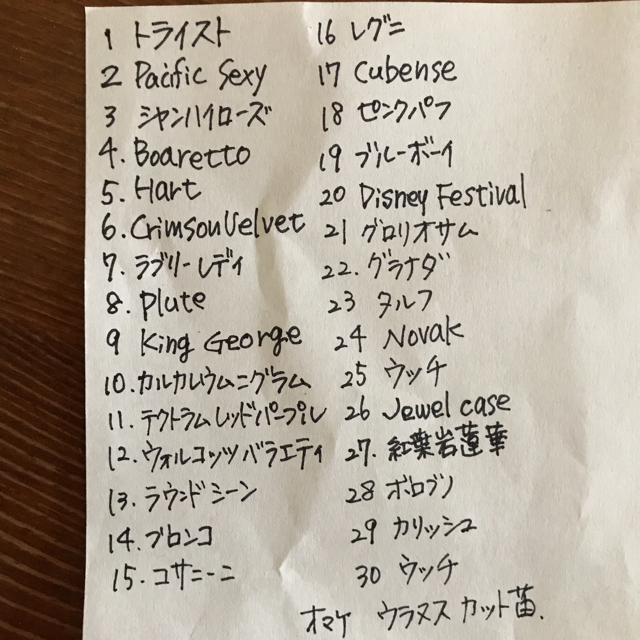 1 トライスト
2 Pacific Sexy
3 シャンハイローズ
4. Boaretto
5. Hart
6. Crimson Velvet
7. ラブリーレディ
8. Plute
9 King George
10. カルカレウムニグラム
11. テクトラムレッドパープル
12. ウォルコッツバラエティ
13. ラウンドシーン
14. ブロンコ
15. コサニーニ
16 レグニ
17 Cubense
18 ピンクパフ
19 ブルーボーイ
20 Disney Festival
21 グロリオサム
22. グラナダ
23 タルフ
24 Novak
25 ウッチ
26 Jewel case
27. 紅葉岩蓮華
28 ボロブソ
29 カリッシュ
30 ウッチ
オマケ ウラヌス カット苗.